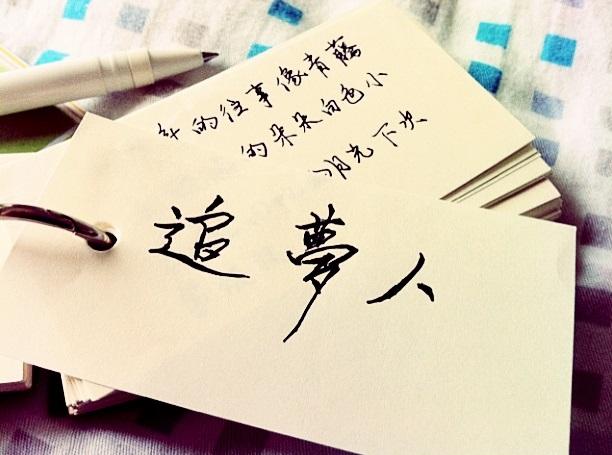 年的往事像青藤
的朵朵白色小
月光下次
追夢人